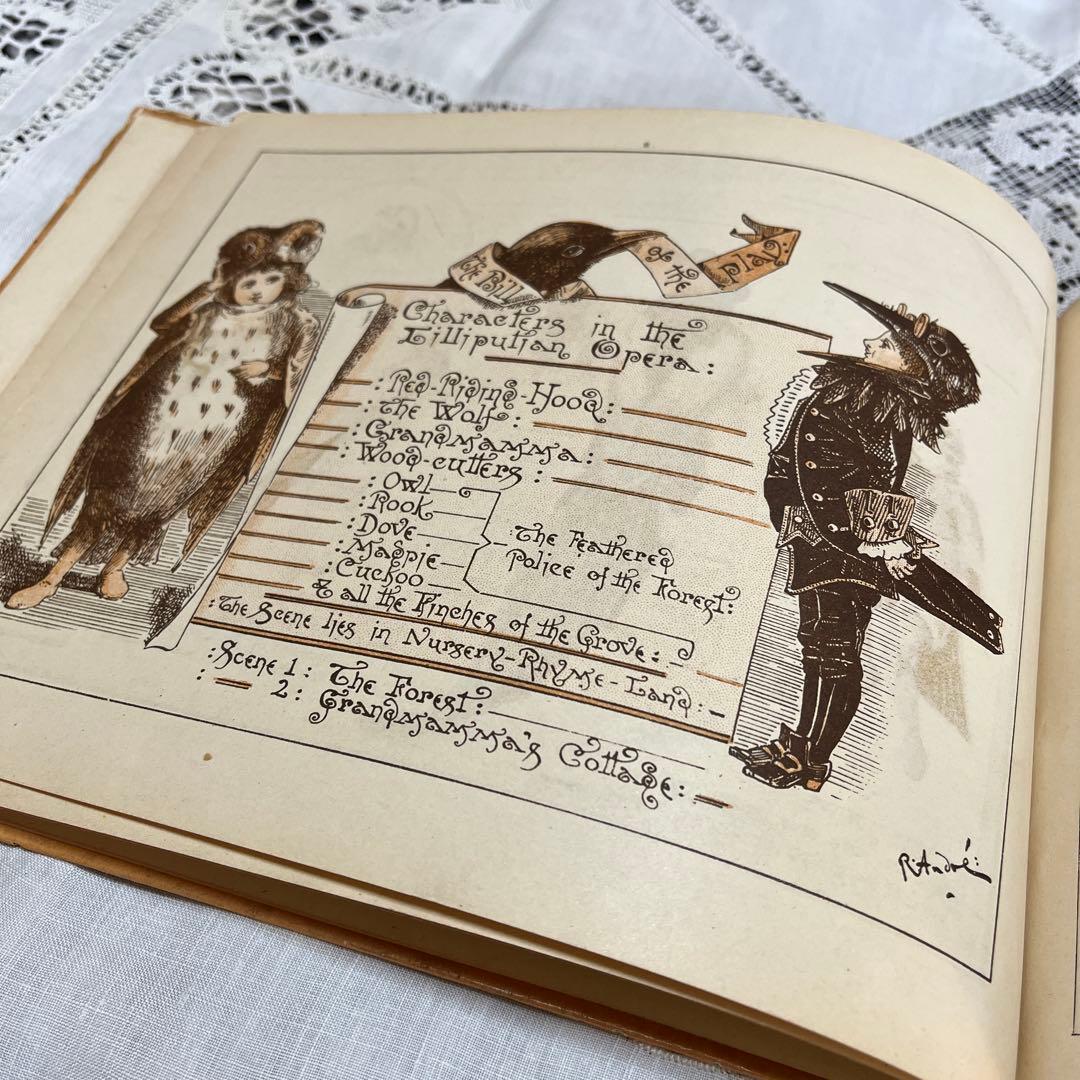 The Bill of the Play:
Characters in the
Lilliputian Opera:
: Red-Riding-Hood:
: The Wolf:
: Grandmamma:
: Wood-cutters:
: Owl
: Rook
: Dove
: Magpie
: Cuckoo
The Feathered
Police of the Forest:
& all the Finches of the Grove:
: The Scene lies in Nursery-Rhyme-Land:
: Scene 1: The Forest:
: 2: Grandmamma's Cottage:
R. André: